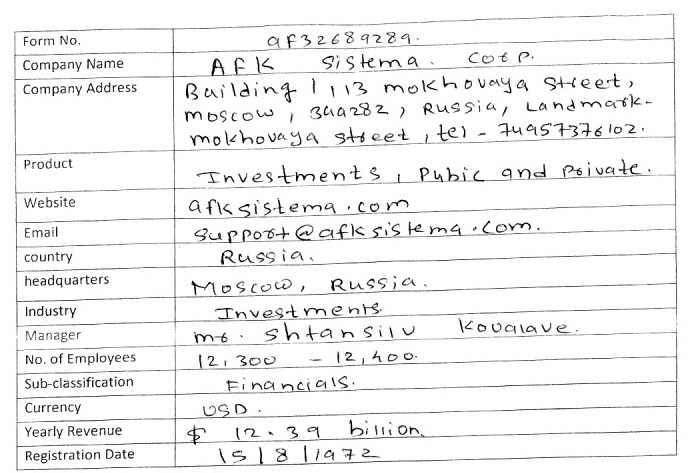 Form No. af32689289.
Company Name AFK Sistema. Corp.
Company Address Building 1, 13 mokhovaya Street,
moscow, 344282, Russia, Landmark-
mokhovaya street, tel - 74957376102.
Product Investments, Pubic and Private.
Website afksistema.com
Email support@afksistema.com.
country Russia.
headquarters Moscow, Russia.
Industry Investments.
Manager mr. Shtansilv Kovalave.
No. of Employees 12,300 - 12,400.
Sub-classification Financials.
Currency USD.
Yearly Revenue $ 12.39 billion.
Registration Date 15/8/1972